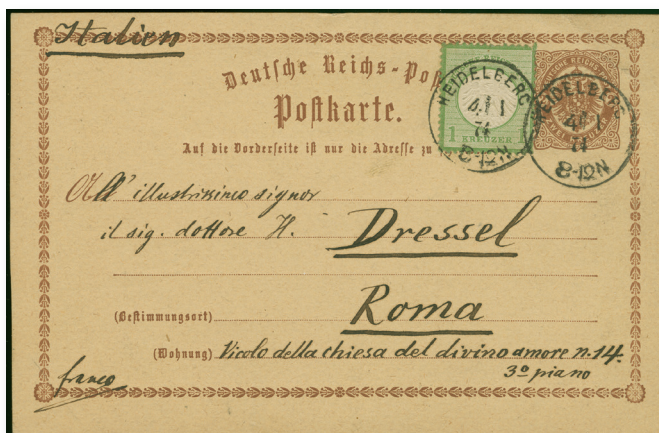 Italien
Deutsche Reichs-Post
Postkarte.
Auf die Vorderseite ist nur die Adresse zu
1 KREUZER
HEIDELBERG
4 1
74
8-12N
HEIDELBERG
4 1
74
8-12N
All' illustrissimo signor
il sig. dottore H. Dressel
(Bestimmungsort) Roma
(Wohnung) Vicolo della chiesa del divino amore n. 14.
3º piano
franco